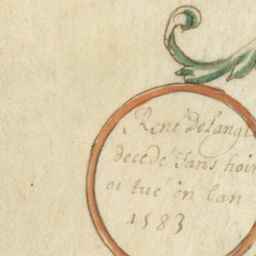 René delangl
decede sans hoir
oi tué en lan
1583